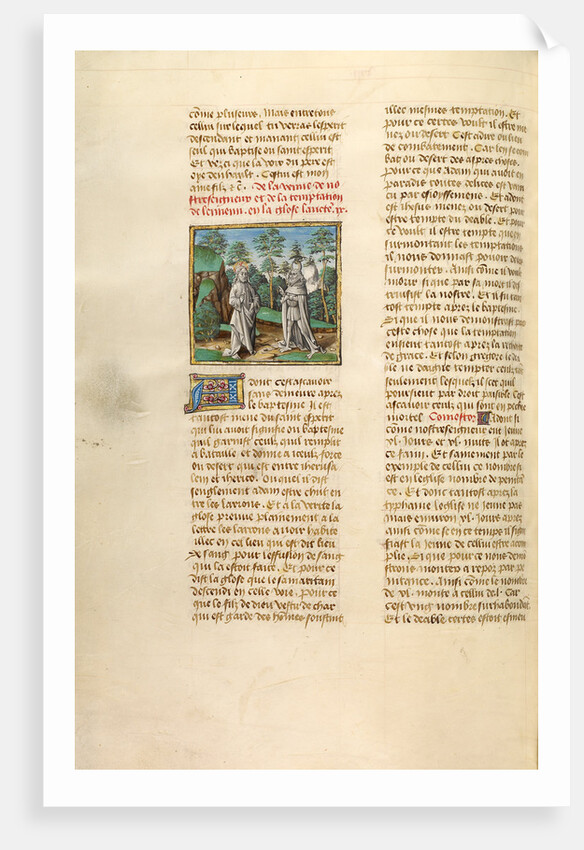 cõme pluseurs. Mais entre tous
cellui sur lequel tu verras lesperit
descendant et manant cellui est
seul qui baptise ou saint esperit
Et vezci que la voix du pere est
oye den hault. Cestui est mon
ame filz &c. De la venue de no
stre seigneur et de la temptation
de lennemi. en la glose
A dont cest ascavoir
sans demeure apres
le baptesme Il est
tantost mene du saint esperit
qui lui avoit signifie ou baptesme
qui garnist ceulz quil remplit
a bataille et donne a iceulz force
ou desert qui est entre iherusa
lem et iherico. Ou quel il dist
senglement adam estre cheut en
tre les larrons. Et a la verite la
glose preuve plainement a la
lettre les larrons a voir habite
illec en cel lieu qui est dit lieu
de sang pour leffusion de sang
qui la estoit faite. Et pour ce
dist la glose que le samaritain
descendi en celle voie. pour ce
que le filz de dieu vestu de char
qui est garde des hõmes soustint
illec mesmes temptation. Et
pour ce certes voult il estre me
nez ou desert Cest a dire ou lieu
de combatement. Car len se com
bat ou desert des aspres choses.
Pour ce que Adam qui avoit en
paradis toutes delices est vain
cu par esioyssemens. Et adont
est ihesus mene ou desert pour
estre tempte du deable. Et pour
ce voult il estre tempte que en
surmontant les temptations
il nous donnast povoir de
surmonter. Ainsi cõme il voult
morir si que par sa mort il des
truisist la nostre. Et il fu tan
tost tempte apres le baptesme.
Et que il nous demonstrast par
ceste chose que la temptation
ensient tantost apres la
de grace. Et selon gregore le dia
ble ne daigne tempter ceulz
seulement lesquelz il scet quil
pourssient par droit paisible Cest
ascavoir ceulz qui sont en pechie
mortel Comestor Adont si
cõme nostre seigneur eut Jeune
xl. Jours et xl nuits Il ot apres
ce faim. Et sainement par le
exemple de cellui ce nombre si
est en leglise nombre de peniten
ce. Et donc tantost apres la
typhanie leglise ne jeune pas
mais environ xl. Jours apres
ainsi cõme se en ce temps il signi
fiast la Jeune de cellui estre acom
plie. Et que pour ce nous demon
strons monter a repoz par pe
nitance. Ainsi cõme le nombre
de xl. monte a cellui de l. Car
cest ung nombre surhabondat.
Et le deable certes estoit esmeu